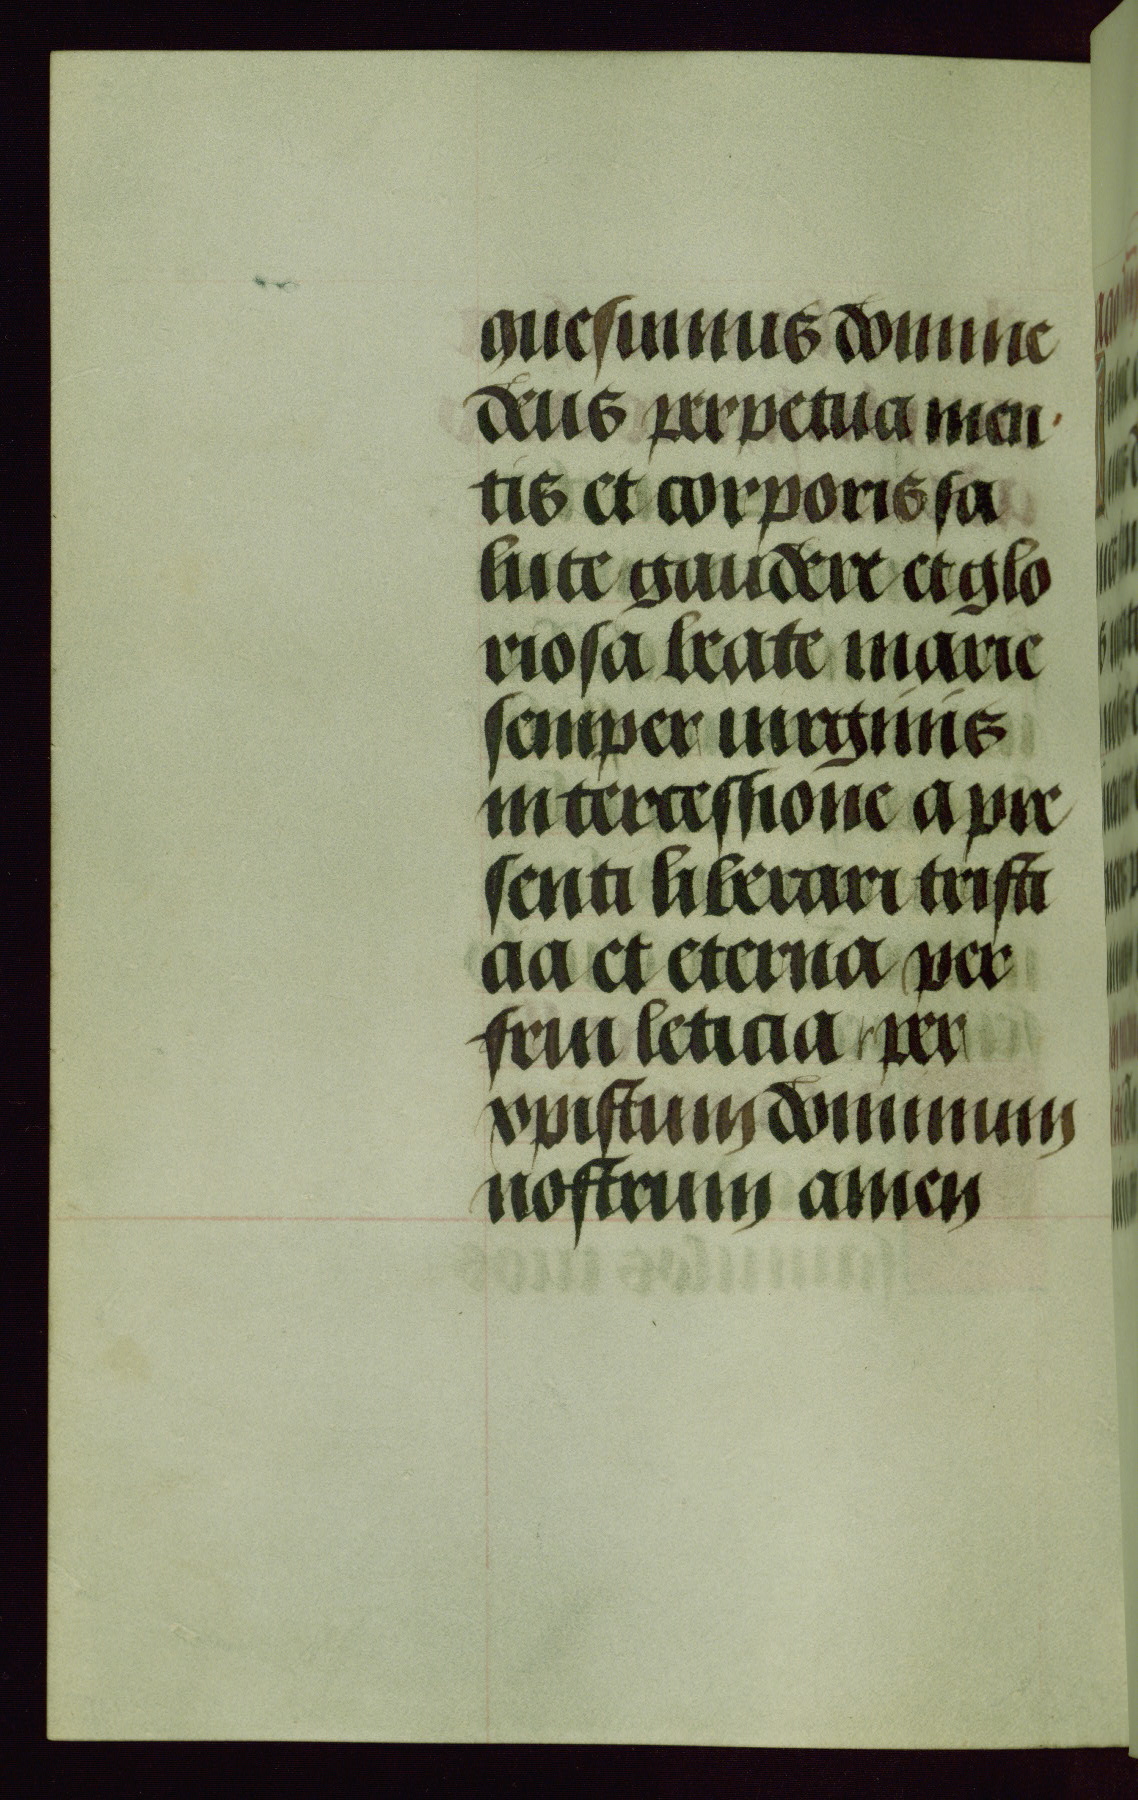 quesumus domine
deus perpetua men
tis et corporis sa
lute gaudere et glo
riosa beate marie
semper uirginis
intercessione a pre
senti liberari tristi
cia et eterna per
frui leticia per
xpistum dominum
nostrum amen